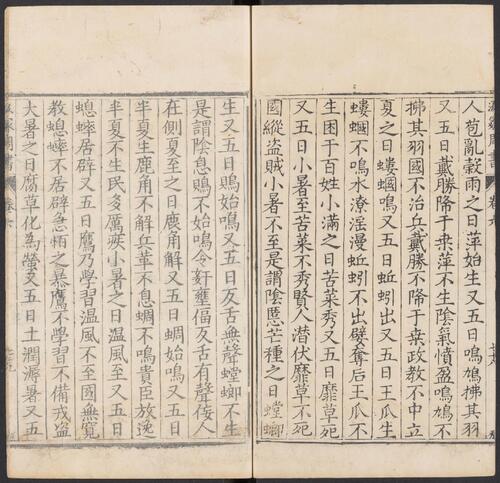 人苞亂穀雨之日萍始生又五日鳴鳩拂其羽
又五日戴勝降于桒萍不生陰氣憤盈鳴鳩不
拂其羽國不治兵戴勝不降于桒政教不中立
夏之日螻蟈鳴又五日蚯蚓出又五日王瓜生
螻蟈不鳴水潦淫漫蚯蚓不出嬖奪后王瓜不
生困于百姓小滿之日苦菜秀又五日靡草死
又五日小暑至苦菜不秀賢人潜伏靡草不死
國縱盗賊小暑不至是謂陰慝芒種之日螳螂
生又五日鵙始鳴又五日反舌無聲螳螂不生
是謂陰息鵙不始鳴令姧壅偪反舌有聲佞人
在側夏至之日鹿角解又五日蜩始鳴又五日
半夏生鹿角不解兵革不息蜩不鳴貴臣放逸
半夏不生民多厲疾小暑之日温風至又五日
蟋蟀居辟又五日鷹乃學習温風不至國無寛
教蟋蟀不居辟急恆之暴鷹不學習不備戎盗
大暑之日腐草化為螢又五日土潤溽暑又五